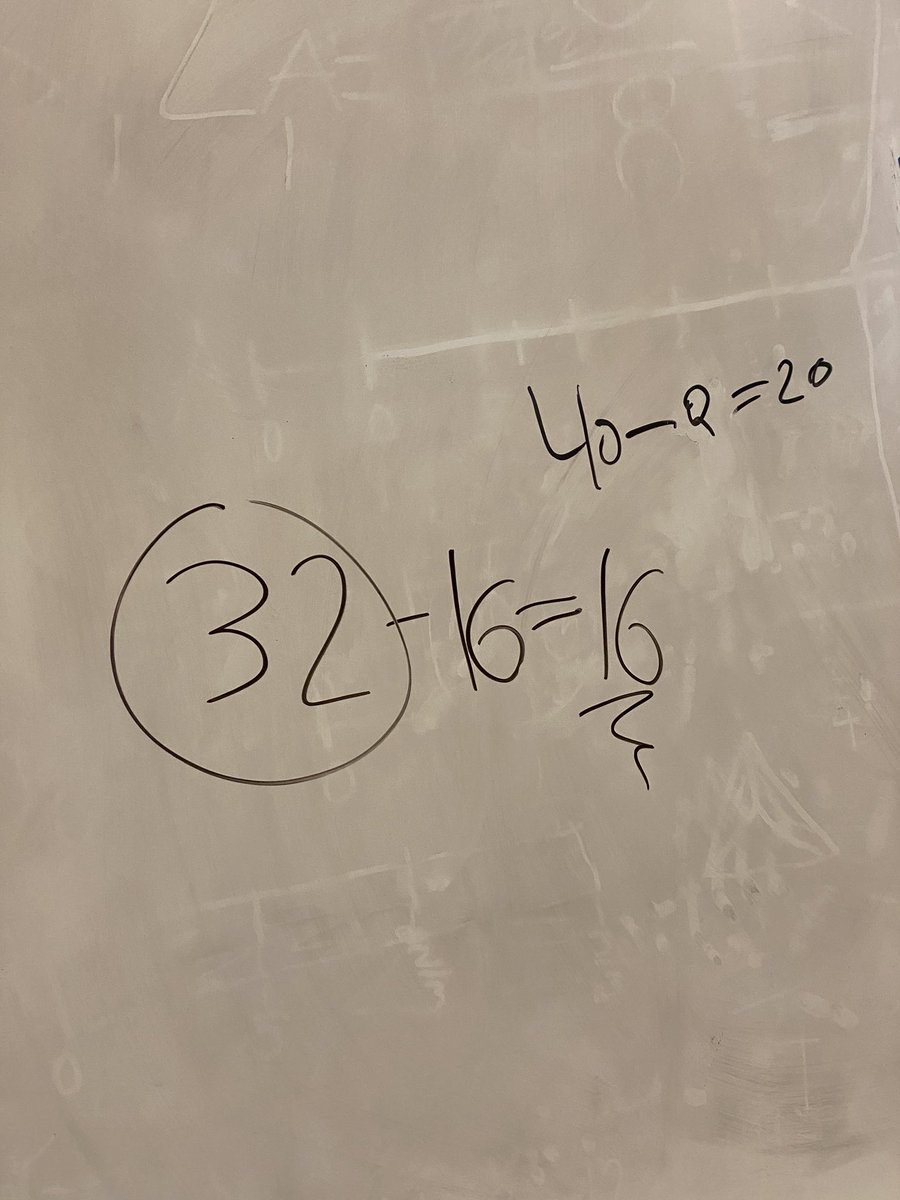 40-Q=20
32-16=16